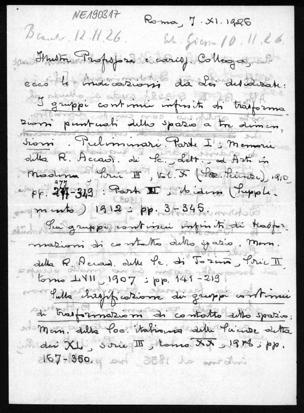 NE190317
Roma, 7. XI. 1926
12.11.26
10.11.26
Illustre Professore e cariss. Collega,
ecco le indicazioni da Lei desiderate:
I gruppi continui infiniti di trasforma
zioni puntuali dello spazio a tre dimen
sioni Preliminari Parte I; Memorie
della R. Accad. di Sc., Lett., ed Arti in
Modena (Serie III, Vol. X (Sez. Scienze), 1910,
pp. -343: Parte II; ibidem (Supple
mento) 1912; pp. 3-345.
Sui gruppi continui infiniti di trasfor
mazioni di contatto dello spazio; Mem.
della R. Accad. delle Sc. di Torino, Serie II
tomo LVII, 1907; pp. 141-219
Sulla classificazione dei gruppi continui
di trasformazioni di contatto dello spazio;
Mem. della Soc. Italiana delle Scienze detta
dei XL, serie III, tomo XX, ; pp.
167-350.